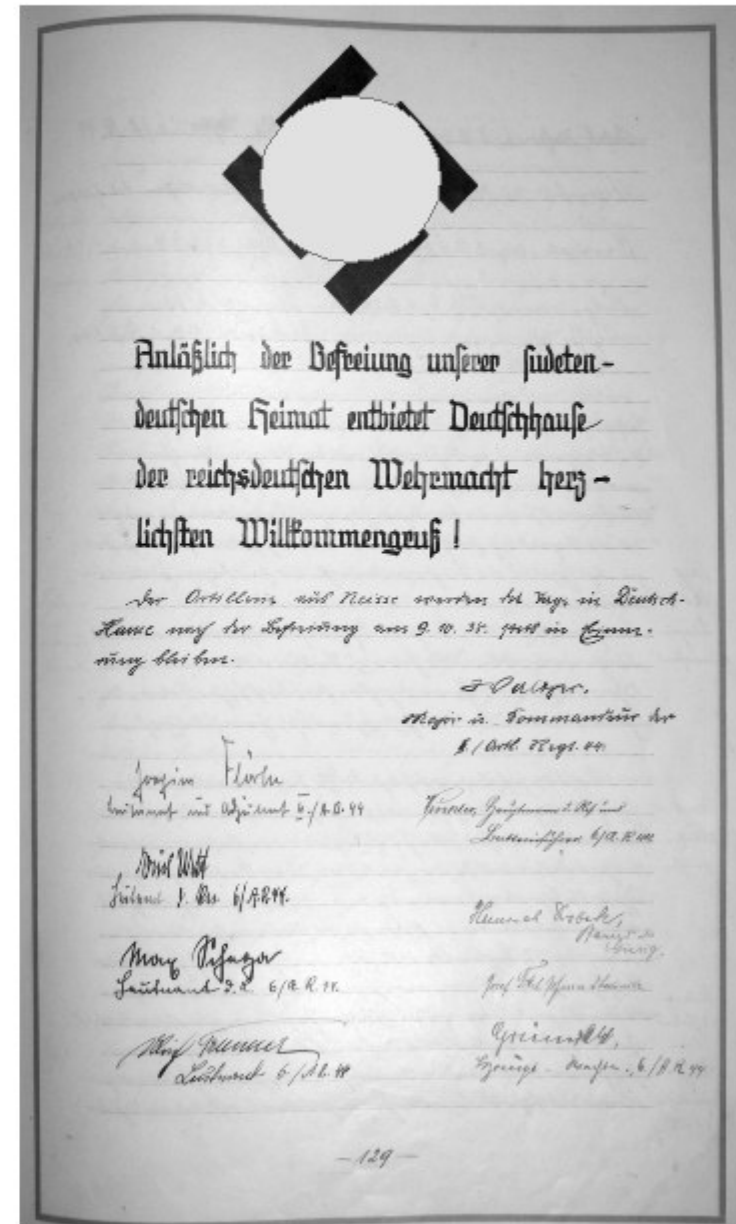 Anläßlich der Befreiung unserer sudeten-
deutschen Heimat entbietet Deutschhause
der reichsdeutschen Wehrmacht herz-
lichsten Willkommengruß !
Der Artillerie aus Neisse werden die Tage in Deutsch-
Hause nach der Befreiung am 9. 10. 38. stets in Erinne-
rung bleiben.
Major u. Kommandeur der
/ Artl. Regt. 44.
Joachim
Leutnant und Adjutant II./A.R. 44
Hauptmann d. Res und
Batterieführer 6/A.R. 44
Witt
Leutnant d. Res 6/A.R. 44.
Heinrich
Max
Leutnant d. R. 6/A.R. 44.
Josef
Leutnant 6/A.R. 44
6/A.R. 44
- 129 -